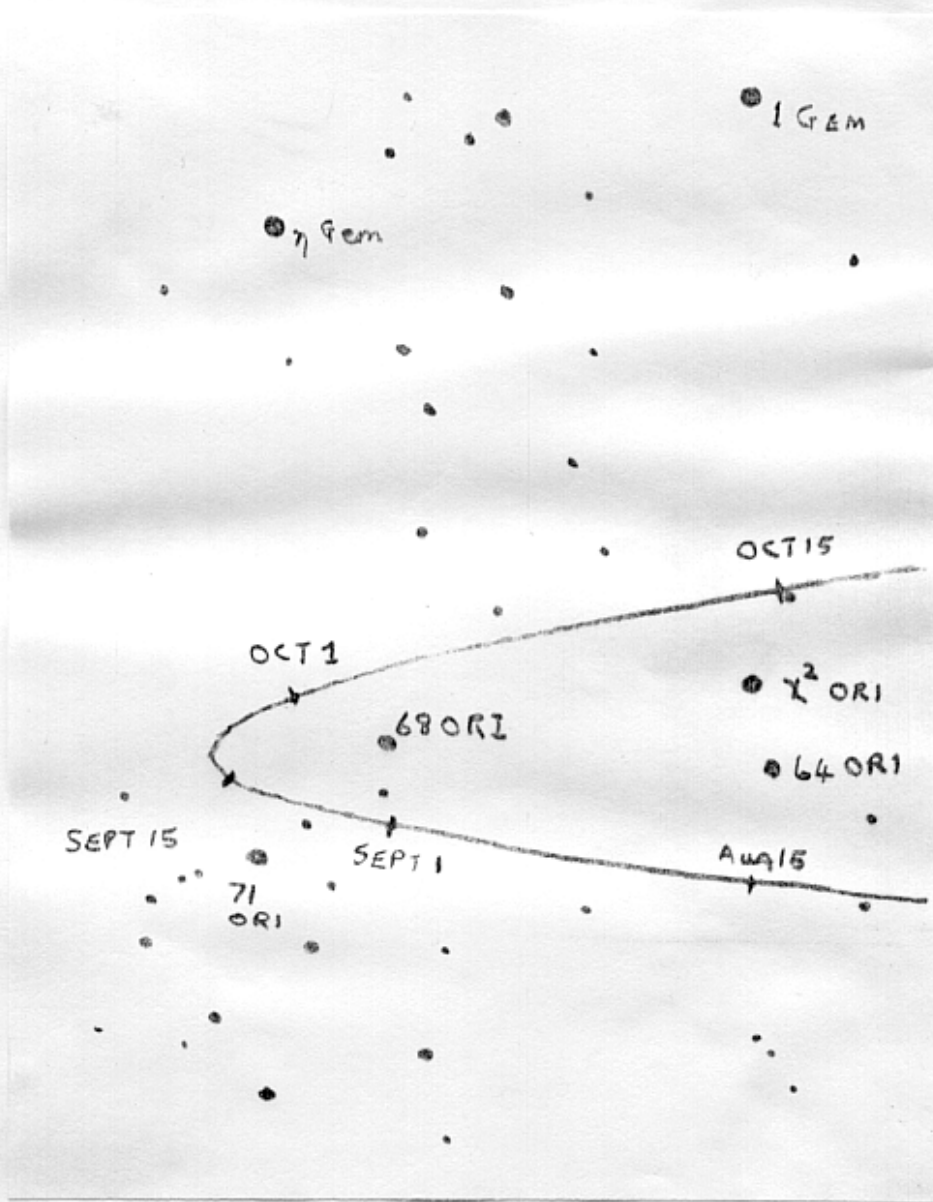 1 GEM
η Gem
OCT 15
OCT 1
χ² ORI
68 ORI
64 ORI
SEPT 15
SEPT 1
AUG 15
71
ORI